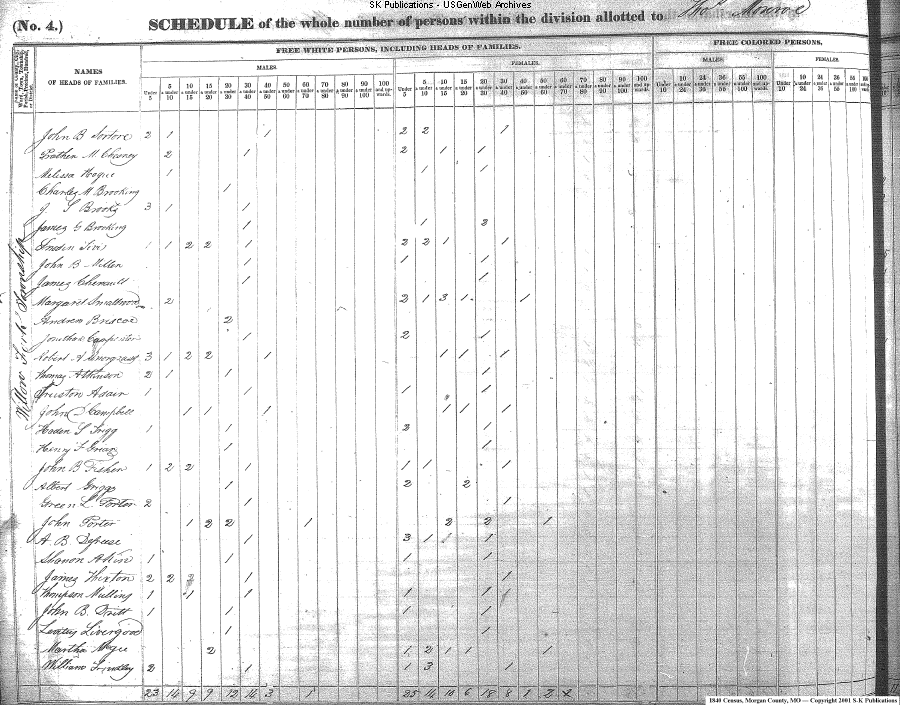 SK Publications - USGenWeb Archives
(No. 4.) SCHEDULE of the whole number of persons within the division allotted to Thos. Monroe
FREE WHITE PERSONS, INCLUDING HEADS OF FAMILIES. FREE COLORED PERSONS,
MALES. FEMALES. MALES. FEMALES
NAMES
OF HEADS OF FAMILIES.
Under 5 5 & under 10 10 & under 15 15 & under 20 20 & under 30 30 & under 40 40 & under 50 50 & under 60 60 & under 70 70 & under 80 80 & under 90 90 & under 100 100 and upwards. Under 5 5 & under 10 10 & under 15 15 & under 20 20 & under 30 30 & under 40 40 & under 50 50 & under 60 60 & under 70 70 & under 80 80 & under 90 90 & under 100 100 and upwards. Under 10 10 & under 24 24 & under 36 36 & under 55 55 & under 100 100 & upwards. Under 10 10 & under 24 24 & under 36 36 & under 55 55 & under 100
Willow Fork Township
John B 2 1 1 2 2 1
M. Chesney 2 1 2 1 1
Melissa Hogue 1 1 1
Charles M Brooking 1
J. S Brooks 3 1 1
James G Brooking 1 1 2
1 1 2 2 1 2 2 1 1
John B Miller 1 1 1
James Chenault 1 1
Margaret Smallwood 2 2 1 3 1 1
Andrew Briscoe 2
Jonathan Carpenter 1 2 1
Robert A Snorgrass 3 1 2 2 1 1 1 1
Thomas Atkinson 2 1 1 1
Adair 1 1 1 1
John S Campbell 1 1 1 1 1 1
Haden S Trigg 1 1 2 1
Henry F 1 1
John B Fisher 1 2 2 1 1 1 1
Albert Griggs 1 2 2
Green L Porter 2 1 1
John Porter 1 2 2 1 2 2 1
A. B. 1 3 1 1 1
Akin 1 1 1 1
James Thixton 2 2 1 1
Thompson Mullins 1 1 1 1 1
John B. 1 1 1 1
Livergood 1 1
Martha 2 1 2 1 1 1
William 2 1 1 3 1
23 14 9 9 12 14 3 1 25 14 10 6 18 8 1 2
1840 Census, Morgan County, MO — Copyright 2001 S-K Publications